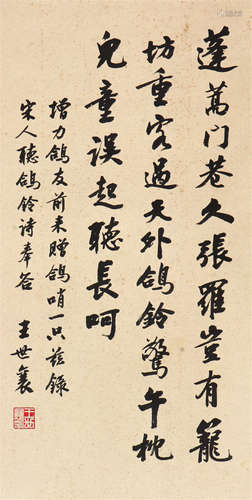 蓬蒿门巷久張羅豈有籠
坊重客過天外鴿鈴驚午枕
兒童误起聽長呵
增力鴿友前来贈鴿哨一只兹錄
宋人聽鴿鈴诗奉答
王世襄